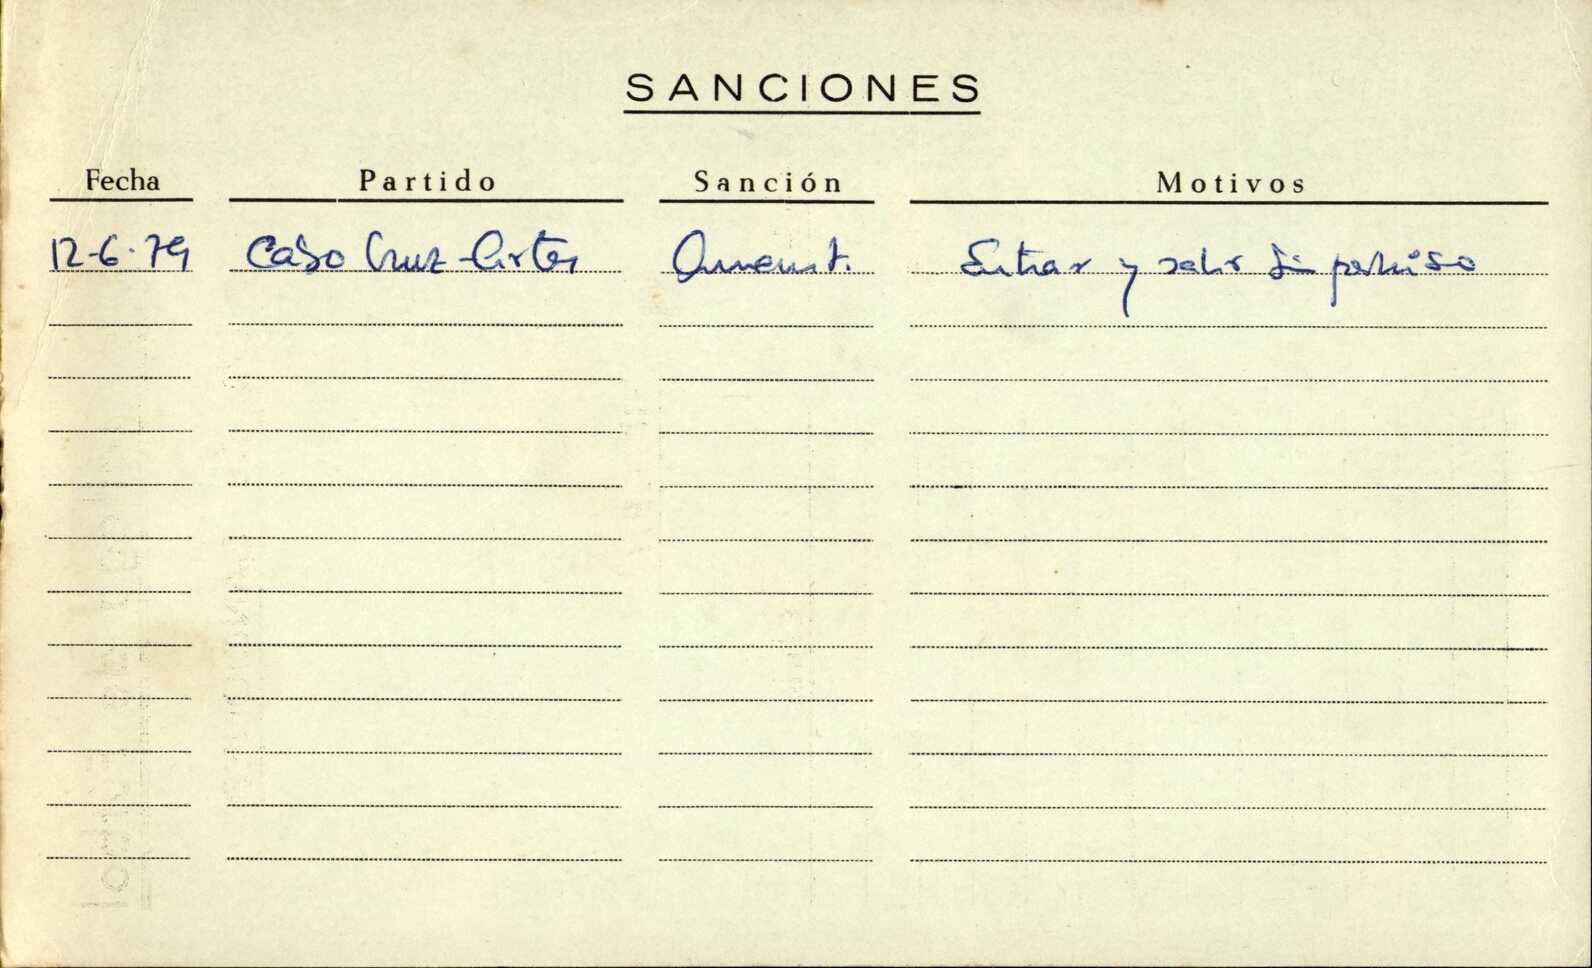 SANCIONES
Fecha Partido Sanción Motivos
12-6-79 Caso Cruz-Artes Amonest. Entrar y salir sin permiso